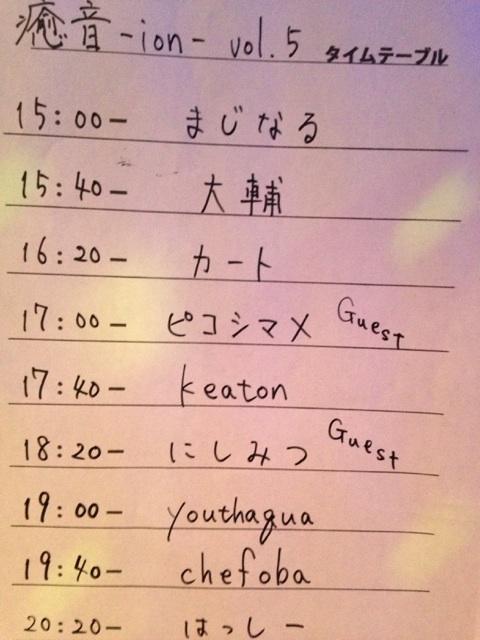 癒音 -ion- vol.5 タイムテーブル
15:00- まじなる
15:40- 大輔
16:20- カート
17:00- ピコシマメ Guest
17:40- keaton
18:20- にしみつ Guest
19:00- youthaqua
19:40- chefoba
20:20- はっしー